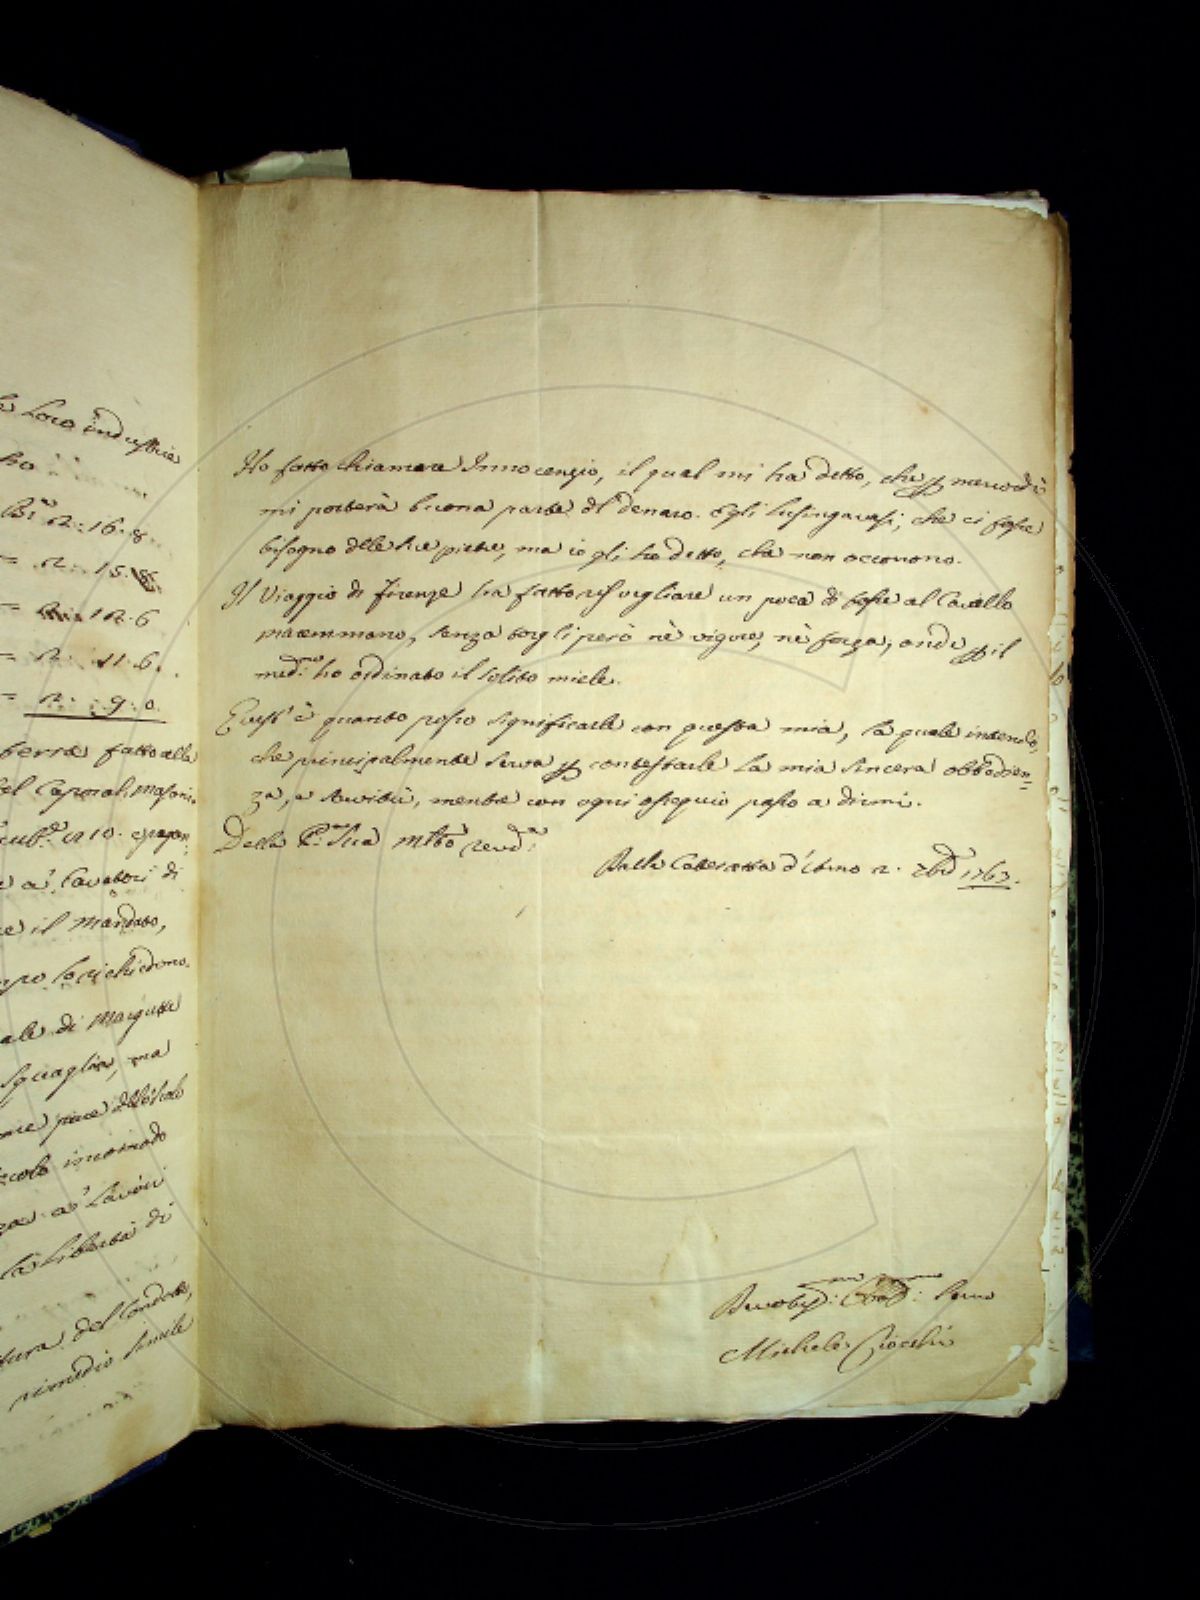 le Loro industrie
2: 16. 8
2: 15.
12. 6
2: 11. 6.
2: 9. 0.
terra fatto alla
del Caporal Masoni.
e a' Cavatori di
re il Mandato,
mpo lo richiedono.
ale di Marzutte
Squaglia, ma
incomodo
a' Lavori
la libertà di
tura del Condotto,
rimedio simile
Ho fatto chiamare Innocenzio, il qual mi ha detto, che p mercordì
mi porterà buona parte dl denaro. Egli lusingavasi, che ci fosse
bisogno dlle sue pietre, ma io gli ho detto, che non occorrono.
Il Viaggio di Firenze ha fatto risvegliare un poca di tosse al Cavallo
maremmano, senza torgli però nè vigore, nè forza; onde p il
med.mo ho ordinato il solito miele.
Quest'è quanto posso significarle con questa mia, la quale intendo,
che principalmente serva p contestarle la mia sincera obbedien=
za, e servitù, mentre con ogni ossequio passo a dirmi.
Della P. Sua Mto Revd.a
Dalle Cateratta d'Arno 2. 7bre 1763.
Devotis. Obb. Servo
Michele Ciocchi